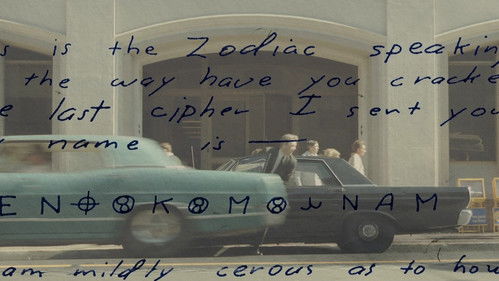 s is the Zodiac speakin
the way have you cracke
e last cipher I sent you
y name is —
E N ⌖ ⊗ K ⊗ M ⊗ N A M
am mildly cerous as to how